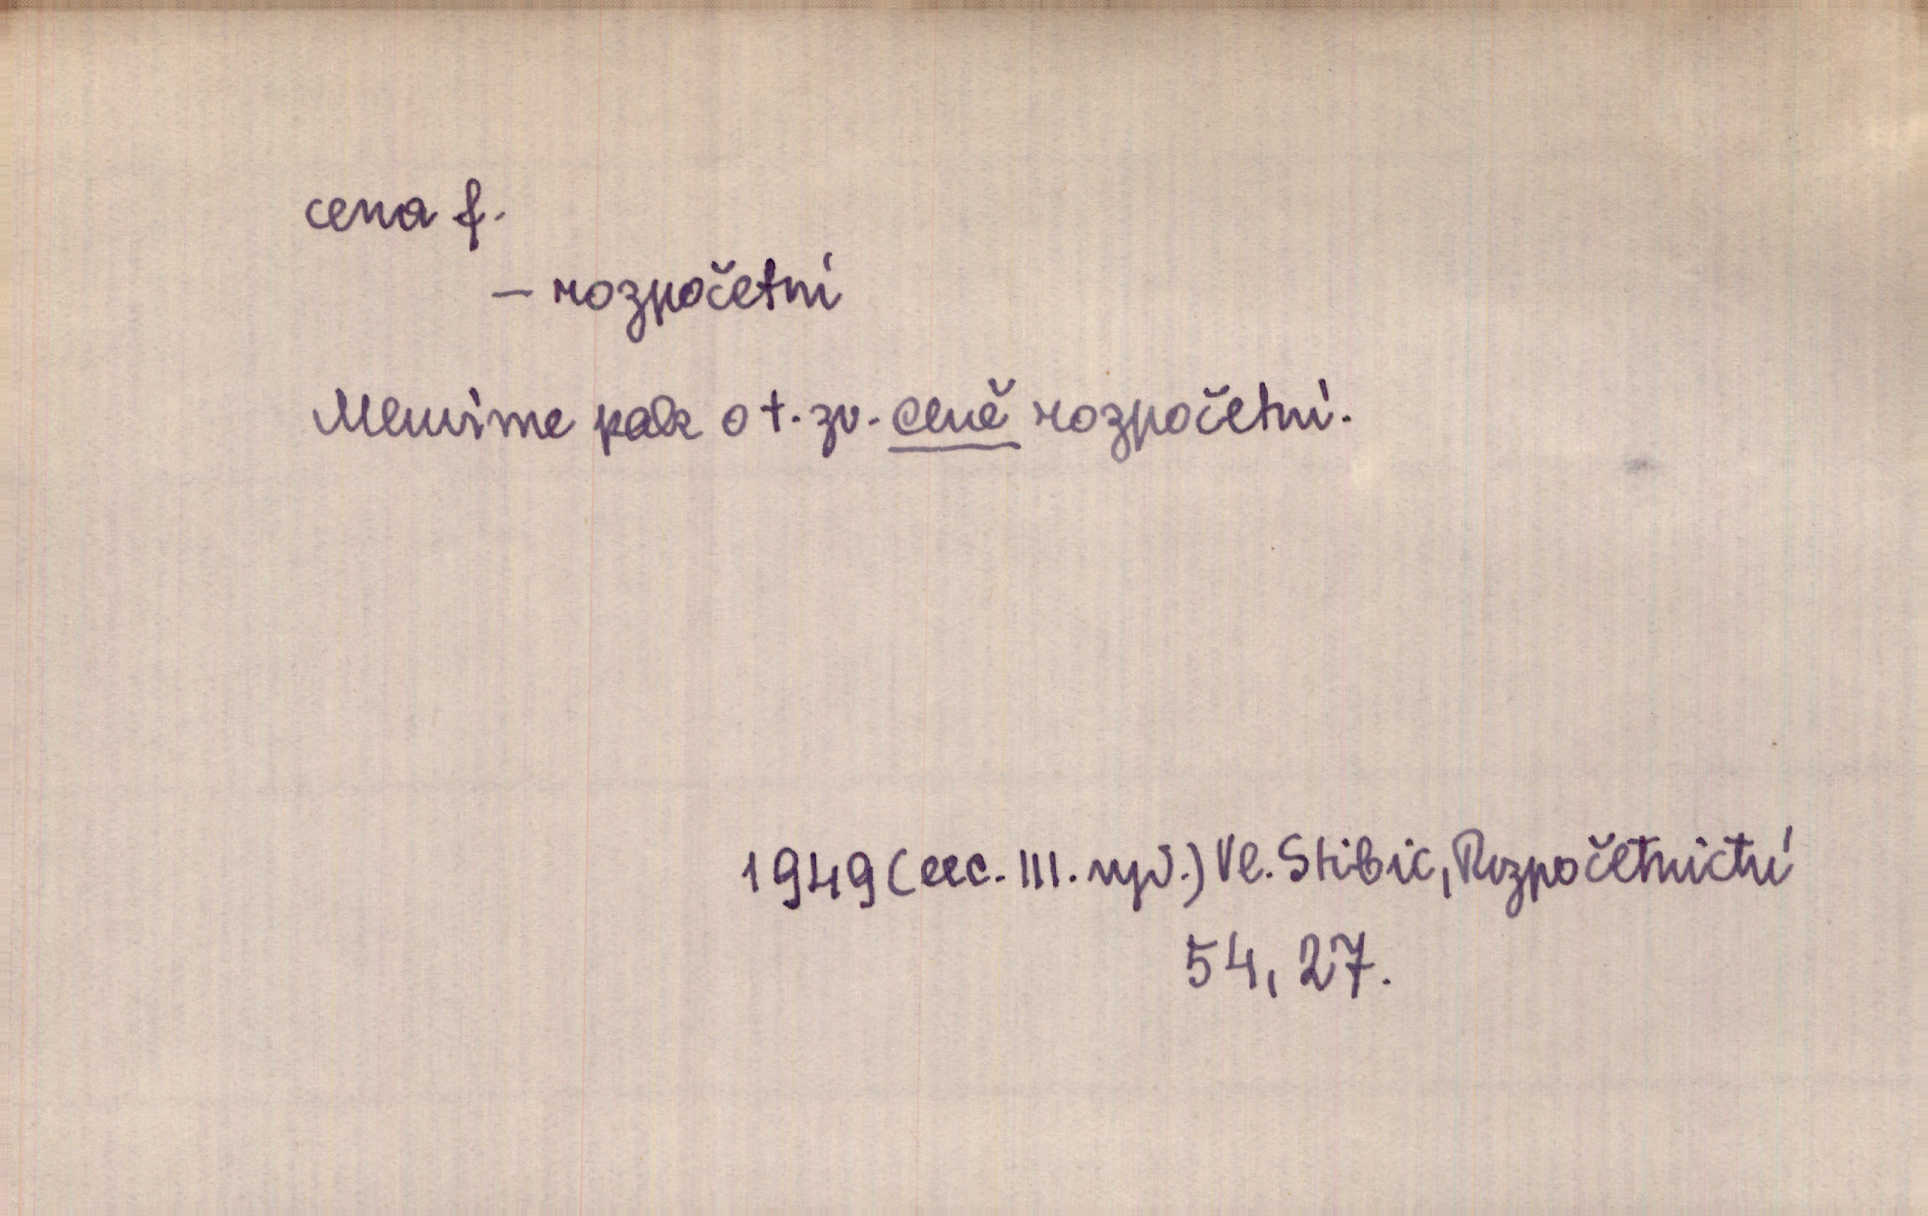 cena f.
— rozpočetní
Mluvíme pak o t. zv. ceně rozpočetní.
1949 (exc. III. vyd.) Vl. Stibic, Rozpočetnictví
54, 27.